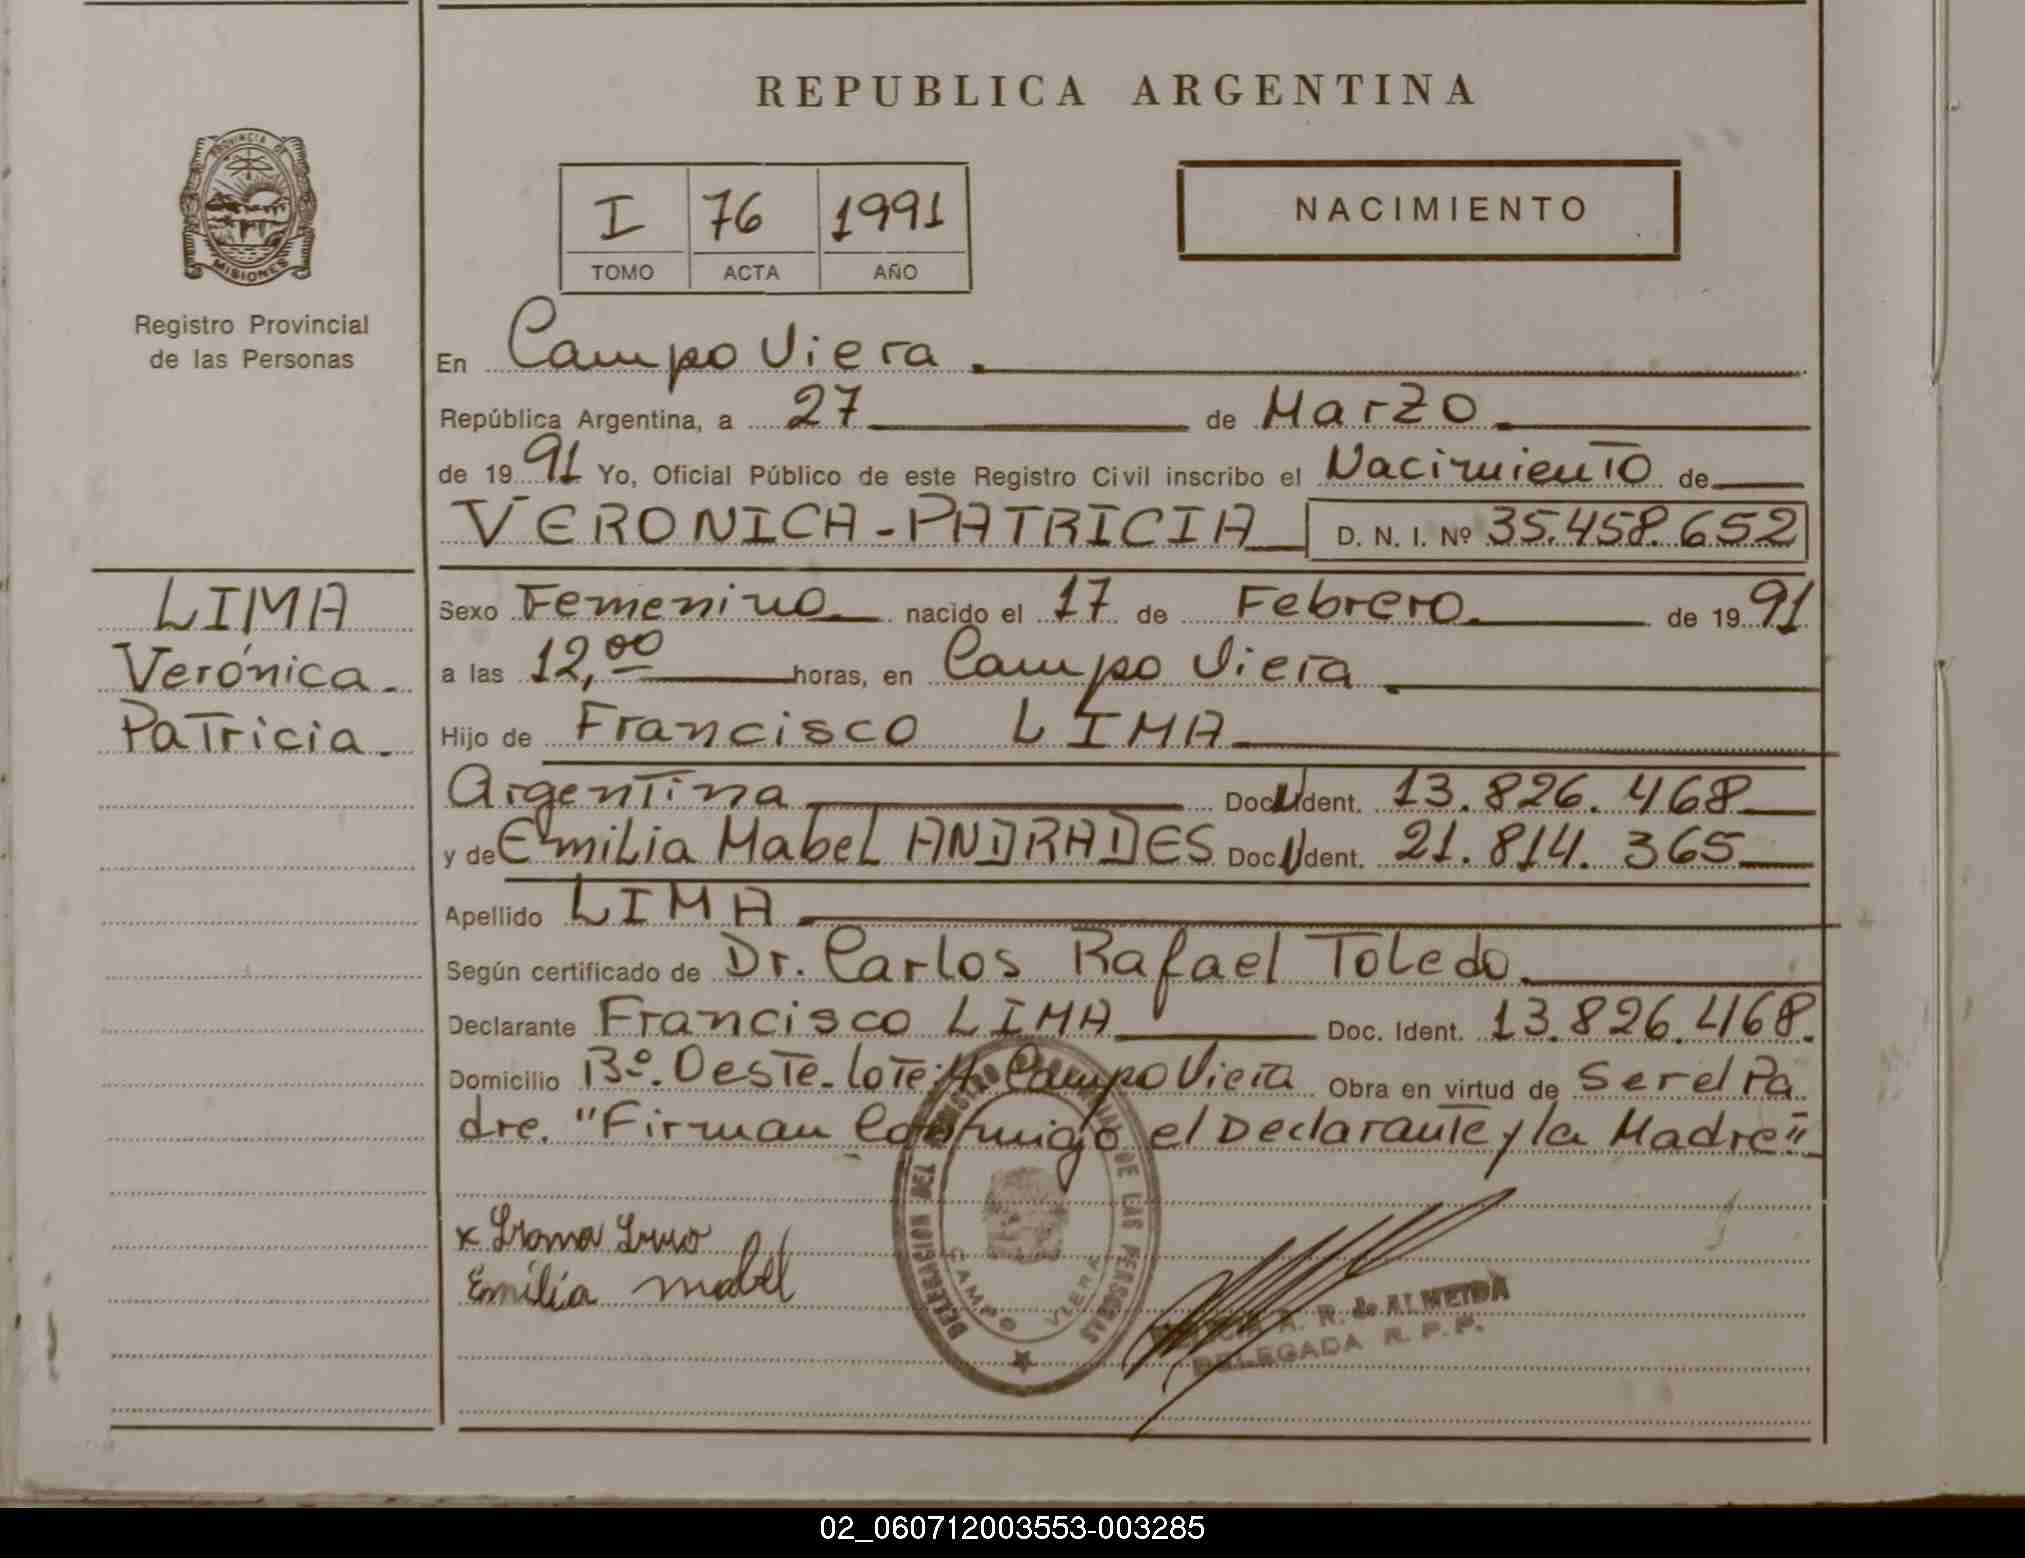 REPUBLICA ARGENTINA
PROVINCIA DE
MISIONES
Registro Provincial
de las Personas
I 76 1991
TOMO ACTA AÑO
NACIMIENTO
En Campo Viera.
República Argentina, a 27 de Marzo
de 19 91 Yo, Oficial Público de este Registro Civil inscribo el Nacimiento de
VERONICA-PATRICIA D. N. I. Nº 35.458.652
LIMA
Verónica.
Patricia.
Sexo Femenino nacido el 17 de Febrero de 19 91
a las 12,00 horas, en Campo Viera
Hijo de Francisco LIMA
Argentina Doc. U Ident. 13.826.468
y de Emilia Mabel ANDRADES Doc. U Ident. 21.814.365
Apellido LIMA
Según certificado de Dr. Carlos Rafael Toledo
Declarante Francisco LIMA Doc. Ident. 13.826.468.
Domicilio Bº. Oeste-lote: Campo Viera Obra en virtud de Ser el Pa
dre. "Firman Conmigo el Declarante y la Madre"
DELEGACION DEL REGISTRO DE LAS PERSONAS
CAMPO VIERA
Emilia mabel
A. R. de ALMEIDA
DELEGADA R. P. P.
02_060712003553-003285